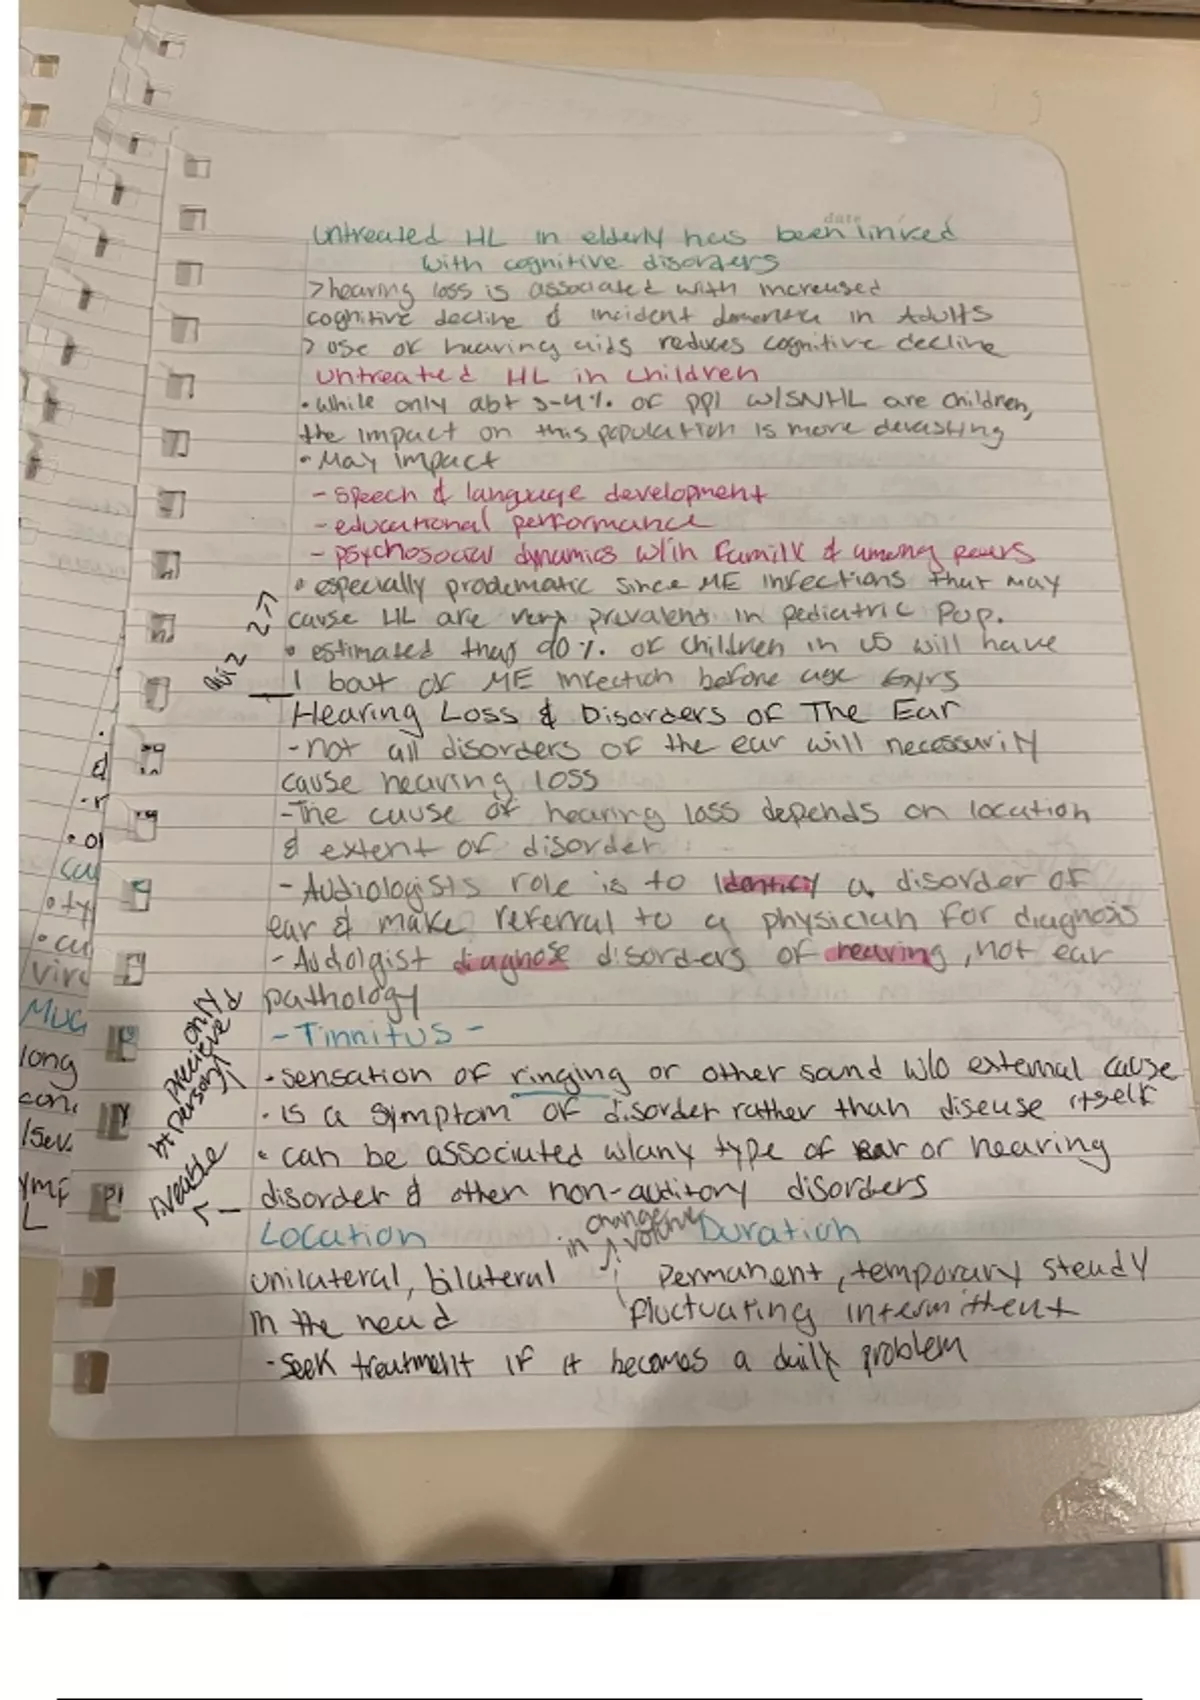 date
Untreated HL in elderly has been linked
with cognitive disorders
>hearing loss is associated with increased
cognitive decline & incident dementia in Adults
> use of hearing aids reduces cognitive decline
Untreated HL in children
• While only abt 3-4% of ppl w/SNHL are children,
the impact on this population is more devasting
• May impact
- speech & language development
- educational performance
- psychosocial dynamics w/in family & among peers
• especially problematic since ME infections that may
cause HL are very prevalent in pediatric pop.
• estimated that 90% of children in US will have
1 bout of ME infection before age 6yrs
Quiz 2->
Hearing Loss & Disorders of The Ear
-not all disorders of the ear will necessarily
cause hearing loss
-The cause of hearing loss depends on location
& extent of disorder
- Audiologists role is to identify a disorder of
ear & make referral to a physician for diagnosis
- Audolgist diagnose disorders of hearing, not ear
pathology
- Tinnitus -
only
precieve
by person
• sensation of ringing or other sound w/o external cause
• is a symptom of disorder rather than disease itself
• can be associated w/any type of ear or hearing
disorder & other non-auditory disorders
Location
change
in volume
Duration
unilateral, bilateral
Permanent, temporary steady
in the head
fluctuating intermittent
-Seek treatment if it becomes a daily problem